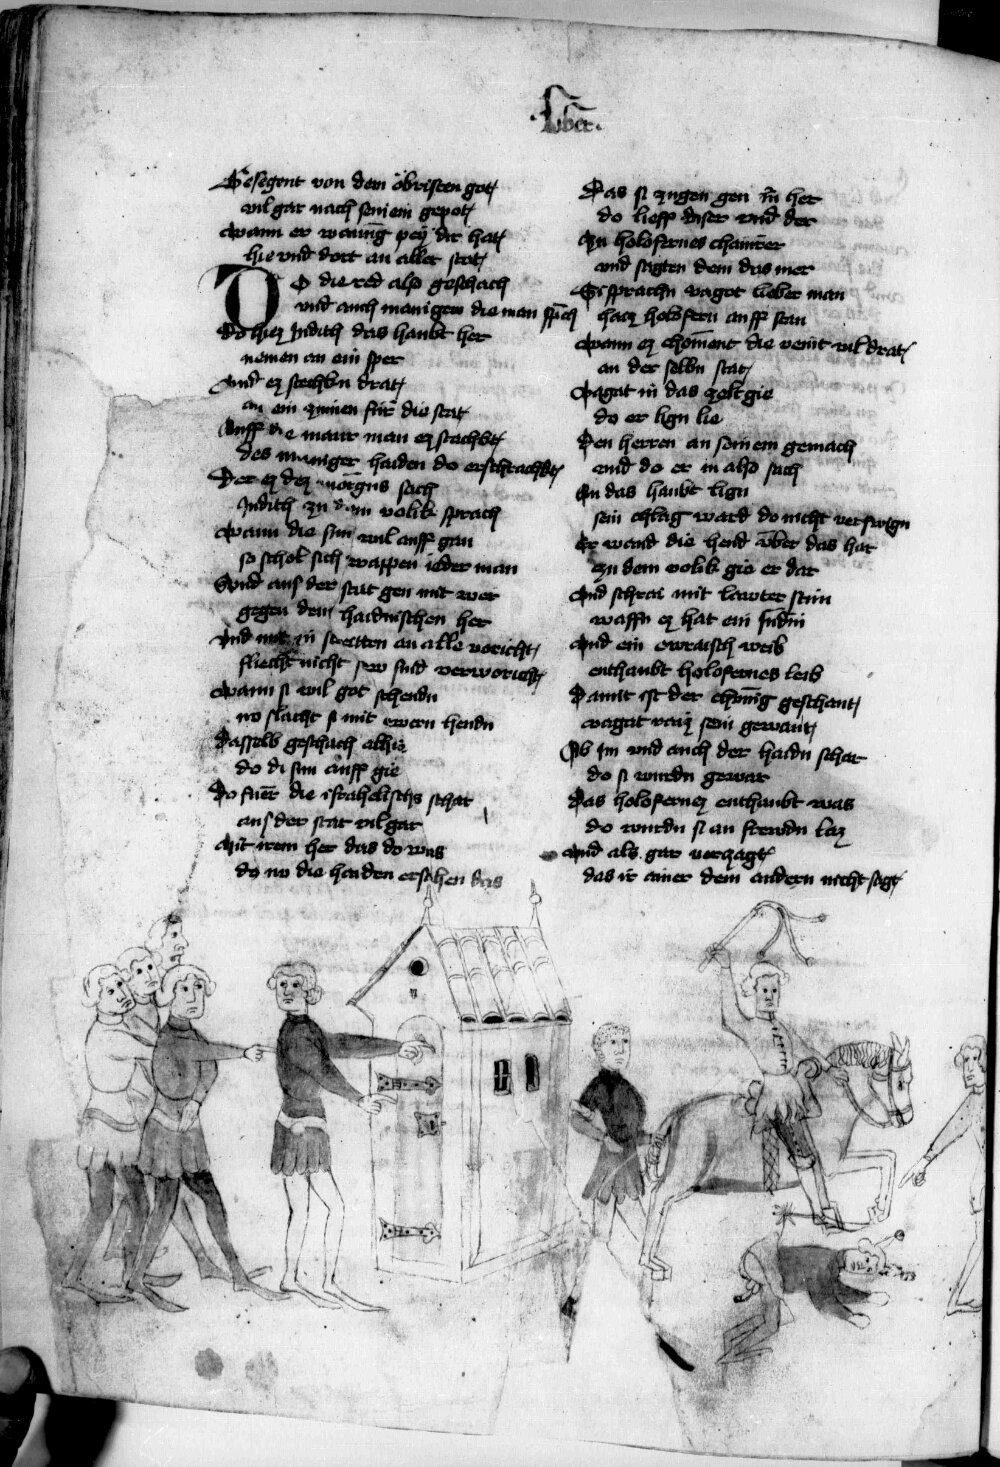 ·Liber·
Gesegent von dem obristen got
vil gar nach seinem gepot
Wann er wonung pey dir hat
hie vnd dort an aller stat
Do die red also geschach
vnd auch manigew die man sprich
Do hiez Judith das haubt her
nemen an ein sper
Vnd ez stechkn drat
an ein zinnen für die stat
Auff die maur man ez stachkt
des maniger haiden do erschrachkt
Der ez dez morgens sach
Judith zu dem volik sprach
Wann die sun wil auff gan
so schol sich wappen ieder man
Vnd aus der stat gen mit wer
gegen dem haidnischen her
Vnd mit in streitten an alle voricht
fliecht nicht sew sind verworicht
Wann si wil got schendn
no slacht si mit ewern hendn
Dasselb geschach alhie
do di sun auff gie
Do fuer die israhelischs schar
aus der stat vil gar
Mit irem her das do was
do nu die haiden ersahen das
Das si zugen gen irm her
do lieff diser vnd der
In holofernes chamrer
vnd sagten dem das mer
Si sprachn vagot lieber man
haiz holofern auff stan
Wann ez choment die veint vil drat
an der selbn stat
Vagat in das zelt gie
do er lign lie
Den herren an seinem gemach
vnd do er in also sach
An das haubt lign
sein chlag ward do nicht verswign
Er wand die hend vber das har
zu dem volik gie er dar
Vnd schrai mit lawter stim
waffn ez hat ein Judin
Vnd ein ewraisch weib
enthaubt holofernes leib
Damit ist der chunig geschant
vagat raiz sein gewant
Ob im vnd auch der haidn schar
do si wurdn gewar
Das holofernez enthaubt was
do wurdn si an frewdn laz
Vnd als gar verzagt
das ir ainer dem andern nicht sagt